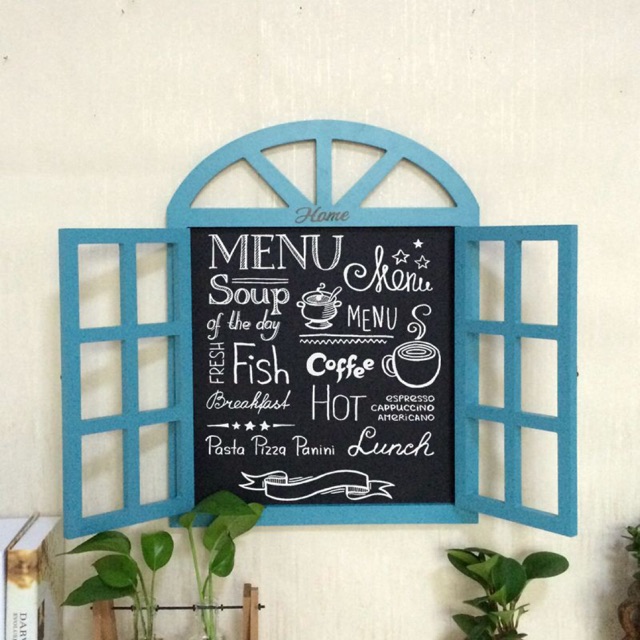 Home
MENU
Menu
Soup
of the day
MENU
FRESH
Fish
Coffee
Breakfast
HOT
ESPRESSO
CAPPUCCINO
AMERICANO
Pasta Pizza Panini
Lunch